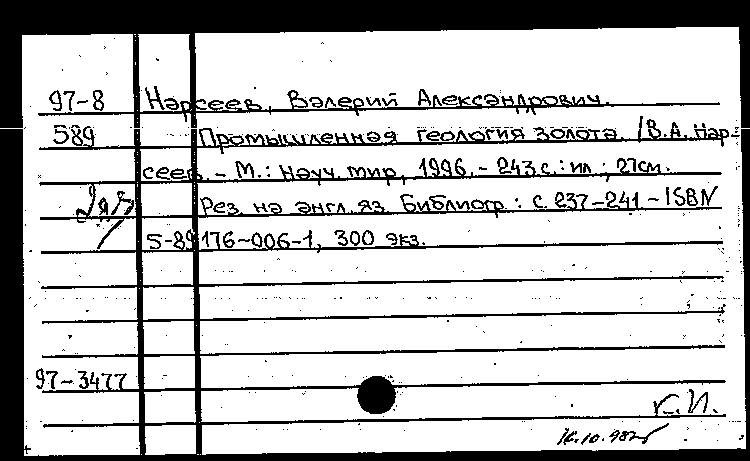 97-8 Нарсеев, Валерий Александрович.
589 Промышленная геология золота. / В.А. Нар-
сеев. - М.: Науч. мир, 1996. - 243 с.: ил.; 27см.
Рез. на англ. яз. Библиогр.: с. 237-241 - ISBN
5-89176-006-1, 300 экз.
97-3477
К.И.